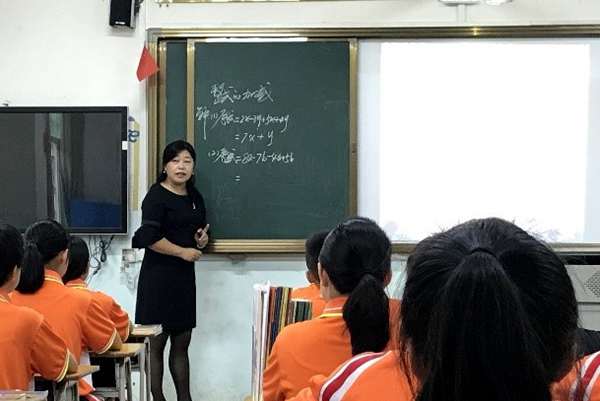 整式的加减
解(1)原式=2x-3y+5x+4y
=7x+y
(2)原式=8a-7b-4a+5b
=